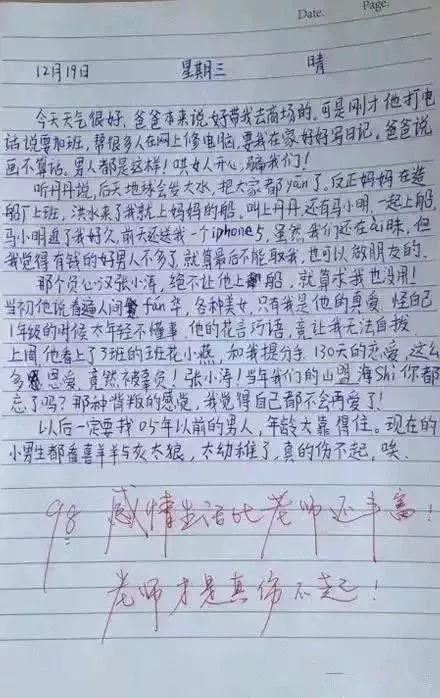 Date. Page.
12月19日 星期三 晴
今天天气很好,爸爸本来说好带我去商场的,可是刚才他打电
话说要加班,帮很多人在网上修电脑,要我在家好好写日记。爸爸说
画不算话。男人都是这样!哄女人开心,骗我们!
听丹丹说,后天地球会发大水,把大家都yān了。反正妈妈在造
船厂上班,洪水来了我就上妈妈的船。叫上丹丹,还有马小明,一起上船。
马小明追了我好久,前天还送我一个iphone5,虽然我们还在ai昧,但
我觉得有钱的好男人不多了,就算最后不能取我,也可以做朋友的。
那个负心汉张小涛,绝不让他上船,就算求我也没用!
当初他说看遍人间fán华,各种美女,只有我是他的真爱。怪自己
1年级的时候太年轻不懂事,他的花言巧语,竟让我无法自拔
上周,他看上了3班的班花小燕,和我提分手,130天的恋爱,这么
多恩爱,竟然被辜负!张小涛!当年我们的山盟海Shi你都
忘了吗?那种背叛的感觉,我觉得自己都不会再爱了!
以后一定要找05年以前的男人,年龄大靠得住。现在的
小男生都看喜羊羊与灰太狼,太幼稚了,真的伤不起,唉。
98 感情生活比老师还丰富!
老师才是真伤不起!